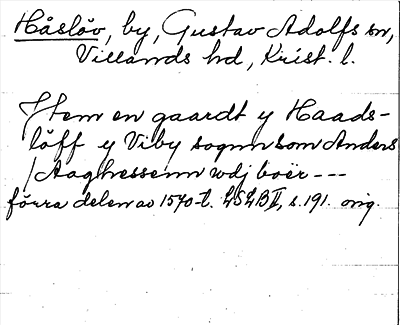 Håslöv, by, Gustav Adolfs sn,
Villands hd, Krist. l.
Jtem en gaardt y Haads-
löff y Viby sognn som Anders
/Aaghessenn vdj boër ---
förra delen av 1570-t. LSLB II, s. 191. orig.